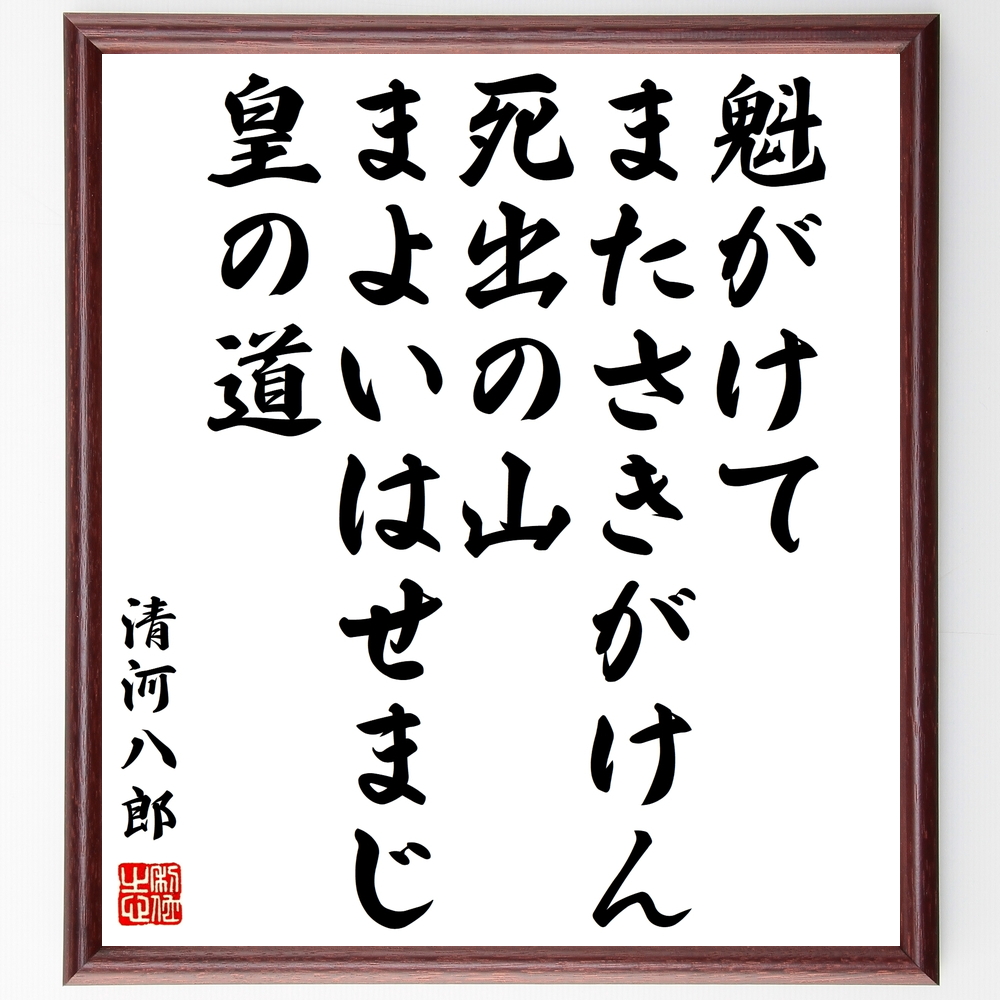 魁がけて
またさきがけん
死出の山
まよいはせまじ
皇の道
清河八郎